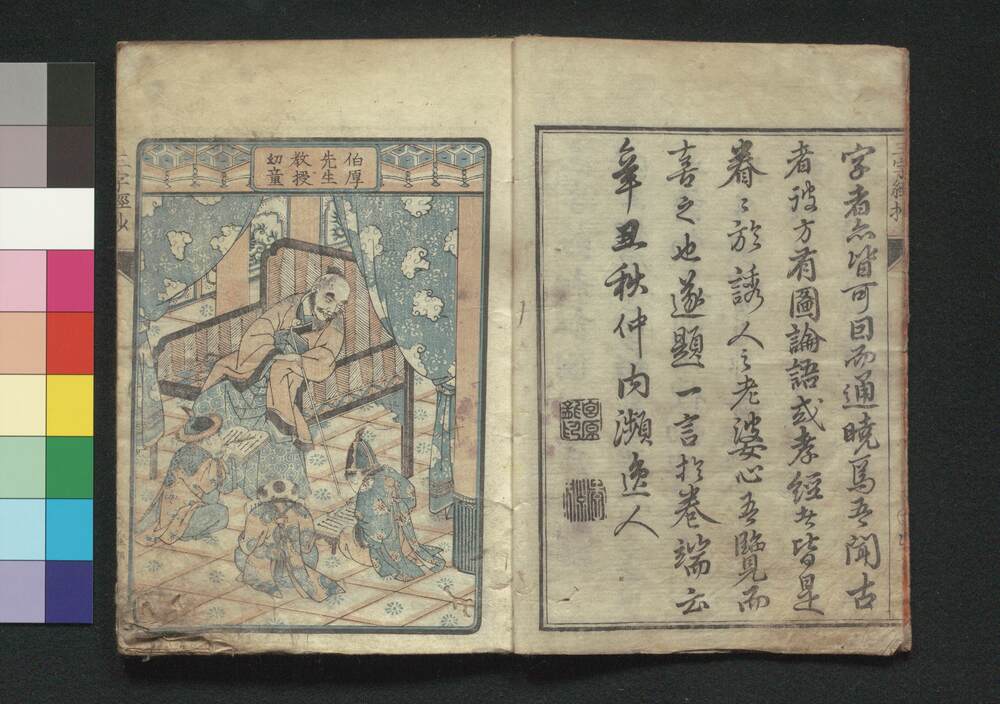 三字經抄
字者亦皆可因而通曉焉吾聞古
者彼方有圖論語或孝經者皆是
眷〻於誘人之老婆心吾覽而
喜之也遂題一言於卷端云
辛丑秋仲 人
伯厚
先生
教授
幼童
三字經抄